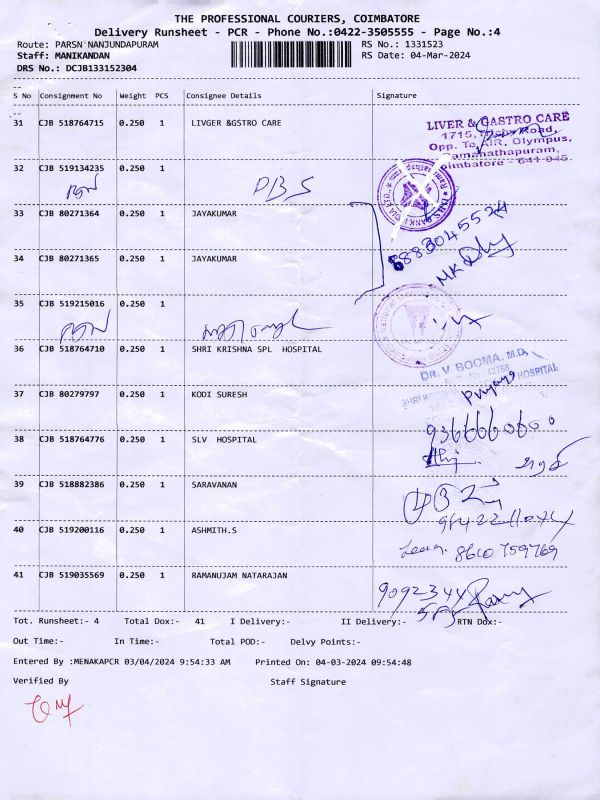 THE PROFESSIONAL COURIERS, COIMBATORE
Delivery Runsheet - PCR - Phone No.:0422-3505555 - Page No.:4
Route: PARSN NANJUNDAPURAM RS No.: 1331523
Staff: MANIKANDAN RS Date: 04-Mar-2024
DRS No.: DCJB133152304
S No Consignment No Weight PCS Consignee Details Signature
31 CJB 518764715 0.250 1 LIVGER &GSTRO CARE
LIVER & GASTRO CARE
1715, Road,
Opp. To AIR, Olympus,
Ramanathapuram,
32 CJB 519134235 0.250 1
PBS
33 CJB 80271364 0.250 1 JAYAKUMAR
8883045524
34 CJB 80271365 0.250 1 JAYAKUMAR
MK
35 CJB 519215016 0.250 1
36 CJB 518764710 0.250 1 SHRI KRISHNA SPL HOSPITAL
DR. V. BOOMA, M.D.,
HOSPITAL
37 CJB 80279797 0.250 1 KODI SURESH
Priyanga
38 CJB 518764776 0.250 1 SLV HOSPITAL
39 CJB 518882386 0.250 1 SARAVANAN
40 CJB 519200116 0.250 1 ASHMITH.S
8610759769
41 CJB 519035569 0.250 1 RAMANUJAM NATARAJAN
Tot. Runsheet:- 4 Total Dox:- 41 I Delivery:- II Delivery:- RTN Dox:-
Out Time:- In Time:- Total POD:- Delvy Points:-
Entered By :MENAKAPCR 03/04/2024 9:54:33 AM Printed On: 04-03-2024 09:54:48
Verified By Staff Signature